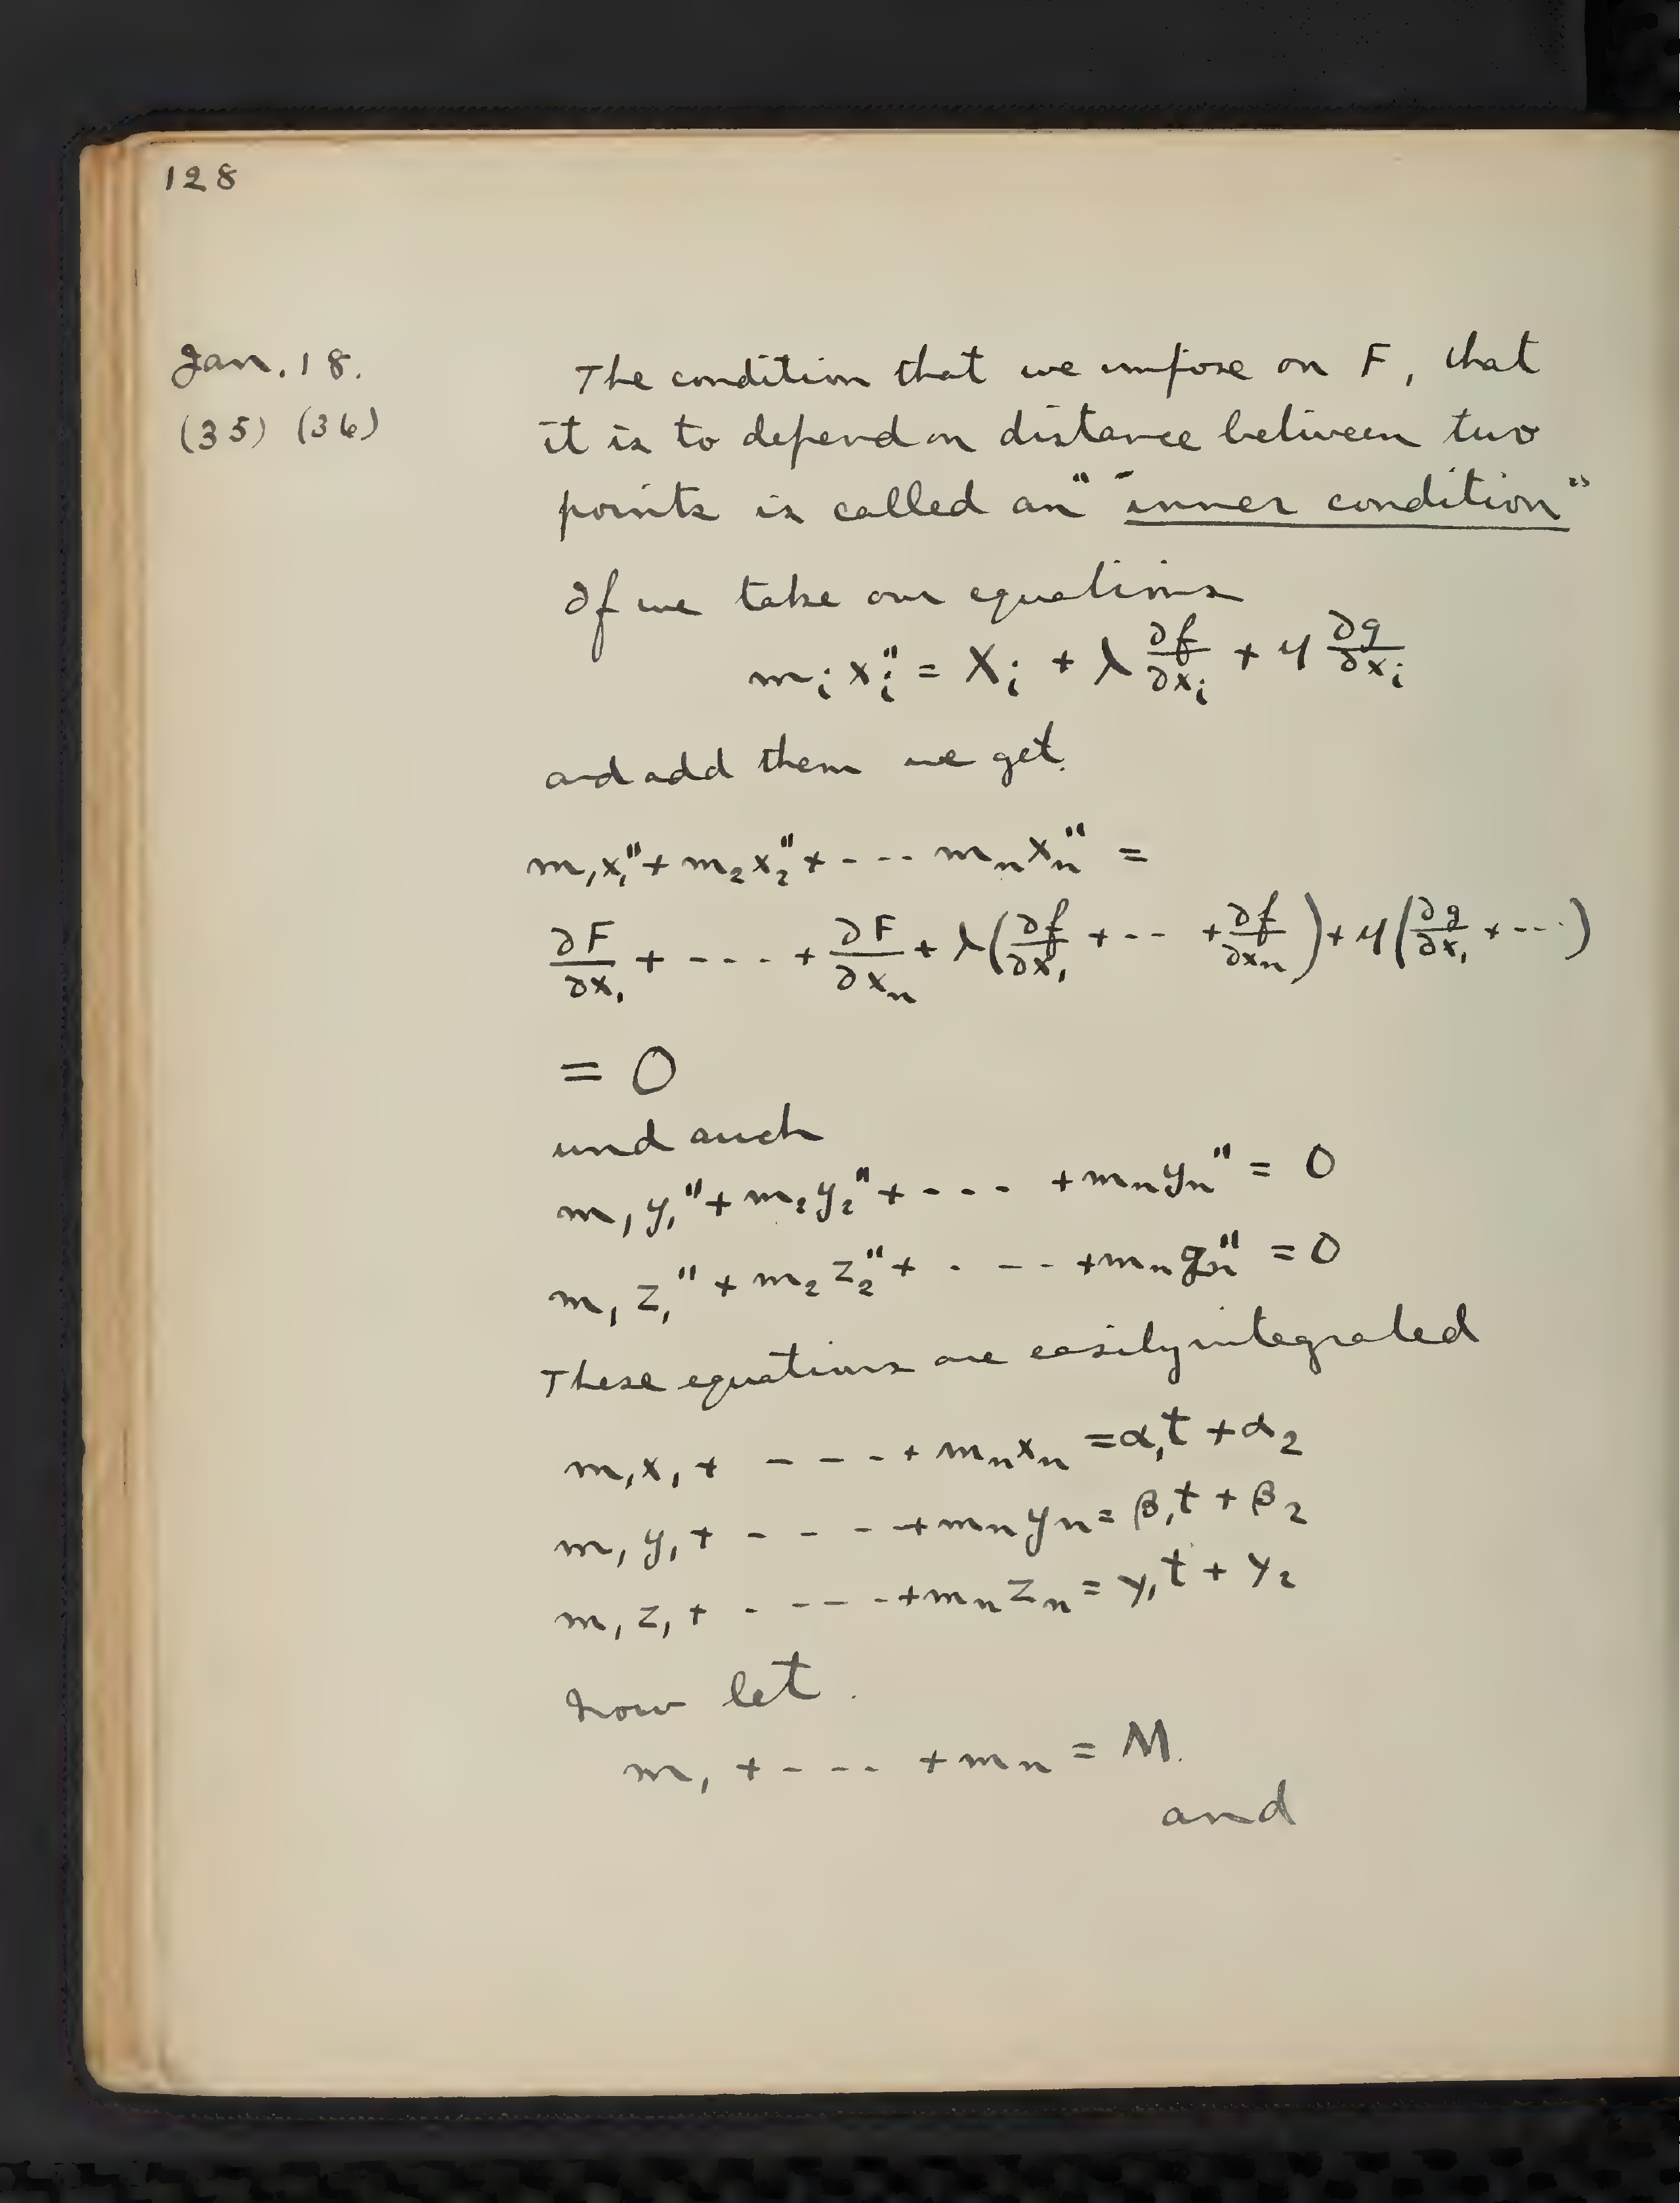 128
Jan. 18.
(35) (36)
The condition that we impose on F, that
it is to depend on distance between two
points is called an "inner condition"
If we take our equations
mᵢ xᵢ" = Xᵢ + λ ∂f/∂xᵢ + μ ∂g/∂xᵢ
and add them we get.
m₁x₁" + m₂x₂" + - - - mₙxₙ" =
∂F/∂x₁ + - - - - + ∂F/∂xₙ + λ(∂f/∂x₁ + - - - + ∂f/∂xₙ) + μ(∂g/∂x₁ + - - -)
= 0
und auch
m₁y₁" + m₂y₂" + - - - - + mₙyₙ" = 0
m₁z₁" + m₂z₂" + - - - - + mₙzₙ" = 0
These equations are easily integrated
m₁x₁ + - - - - + mₙxₙ = α₁t + α₂
m₁y₁ + - - - - + mₙyₙ = β₁t + β₂
m₁z₁ + - - - - - + mₙzₙ = γ₁t + γ₂
Now let.
m₁ + - - - - + mₙ = M.
and